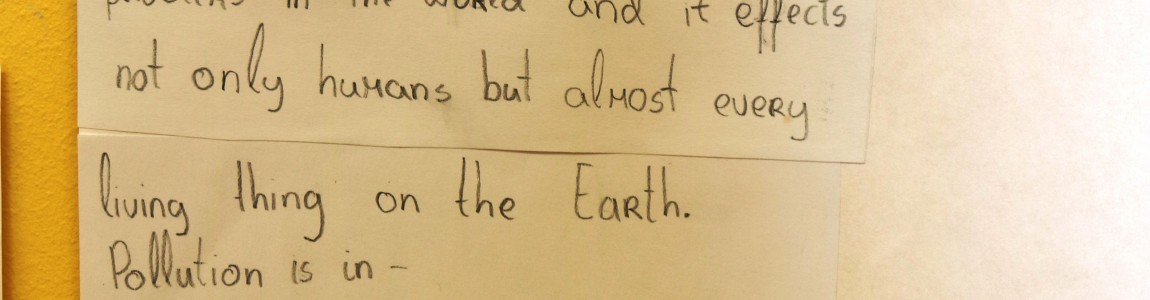 problems in the world and it effects
not only humans but almost every
living thing on the Earth.
Pollution is in -